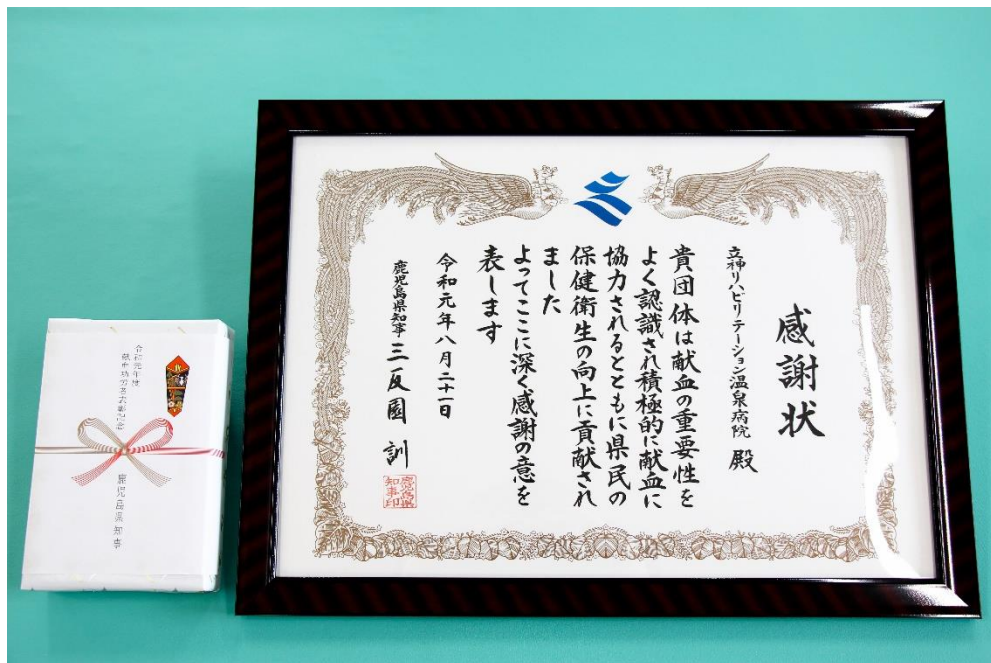 感謝状
立神リハビリテーション温泉病院 殿
貴団体は献血の重要性を
よく認識され積極的に献血に
協力されるとともに県民の
保健衛生の向上に貢献され
ました
よってここに深く感謝の意を
表します
令和元年八月二十一日
鹿児島県知事 三反園 訓
鹿児島県
知事印
令和元年度
献血功労者表彰記念
鹿児島県知事